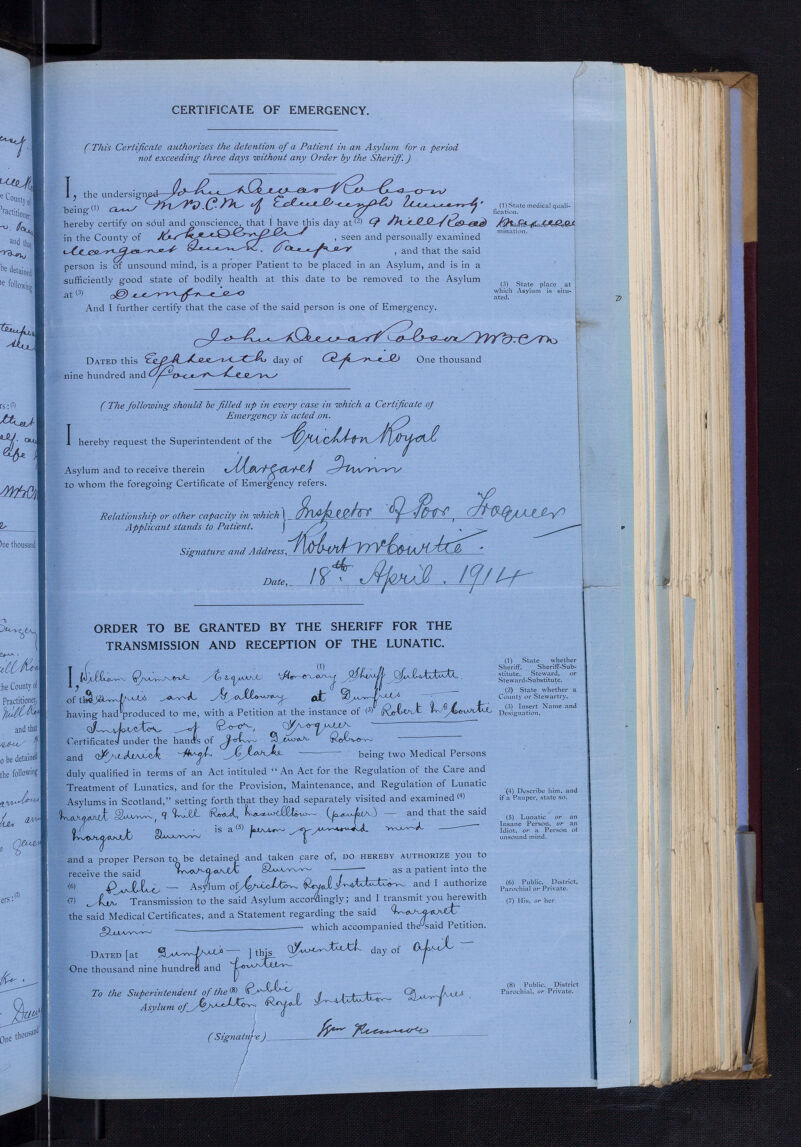 CERTIFICATE OF EMERGENCY.
(This Certificate authorizes the detention of a Patient in an Asylum for a period
not exceeding three days without any Order by the Sheriff.)
I, the undersigned John Dewar Robson
being (1) an M.B.C.M. of Edinburgh University
hereby certify on soul and conscience, that I have this day at (2) 9 Mill Road
in the County of , seen and personally examined
Margaret Quinn. Pauper , and that the said
person is of unsound mind, is a proper Patient to be placed in an Asylum, and is in a
sufficiently good state of bodily health at this date to be removed to the Asylum
at (3) Dumfries
And I further certify that the case of the said person is one of Emergency.
(1) State medical quali-
fication.
mination.
(3) State place at
which Asylum is situ-
ated.
John Dewar Robson M.B.C.M
DATED this Eighteenth day of April One thousand
nine hundred and fourteen
(The following should be filled up in every case in which a Certificate of
Emergency is acted on.
I hereby request the Superintendent of the Crichton Royal
Asylum and to receive therein Margaret Quinn
to whom the foregoing Certificate of Emergency refers.
Relationship or other capacity in which } Inspector of Poor, Troqueer
Applicant stands to Patient.
Signature and Address, Robert McCourtie.
Date, 18th. April. 1914
ORDER TO BE GRANTED BY THE SHERIFF FOR THE
TRANSMISSION AND RECEPTION OF THE LUNATIC.
I, William Primrose Esquire Honorary (1) Sheriff Substitute
of the Dumfries and Galloway at Dumfries
having had produced to me, with a Petition at the instance of (3) Robert McCourtie
Inspector of Poor, Troqueer
Certificates under the hands of John Dewar Robson
and Frederick Hugh Clarke being two Medical Persons
duly qualified in terms of an Act intituled "An Act for the Regulation of the Care and
Treatment of Lunatics, and for the Provision, Maintenance, and Regulation of Lunatic
Asylums in Scotland," setting forth that they had separately visited and examined (4)
Margaret Quinn, 9 Mill Road, Maxwelltown (pauper) — and that the said
Margaret Quinn is a (5) person of unsound mind
and a proper Person to be detained and taken care of, DO HEREBY AUTHORIZE you to
receive the said Margaret Quinn as a patient into the
(6) Public — Asylum of Crichton Royal Institution and I authorize
(7) her Transmission to the said Asylum accordingly; and I transmit you herewith
the said Medical Certificates, and a Statement regarding the said Margaret
Quinn which accompanied the said Petition.
DATED [at Dumfries — ] this Twentieth day of April —
One thousand nine hundred and fourteen
To the Superintendent of the (8) Public
Asylum of Crichton Royal Institution Dumfries.
(Signature) Wm Primrose
(1) State whether
Sheriff, Sheriff-Sub-
stitute, Steward, or
Steward-Substitute.
(2) State whether a
County or Stewartry.
(3) Insert Name and
Designation.
(4) Describe him, and
if a Pauper, state so.
(5) Lunatic or an
Insane Person, or an
Idiot, or a Person of
unsound mind.
(6) Public, District,
Parochial or Private.
(7) His, or her
(8) Public, District
Parochial, or Private.